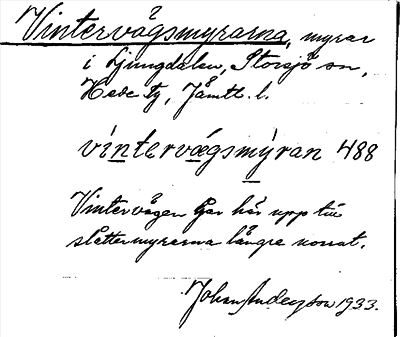 Vintervågsmyrarna, myrar
i Ljungdalen, Storsjö sn,
Hede tg, Jämtl. l.
vìntervàgsmy̒ran 488
Vintervägen går här upp till
slåttermyrarna längre norrut.
Johan Anderson 1933.